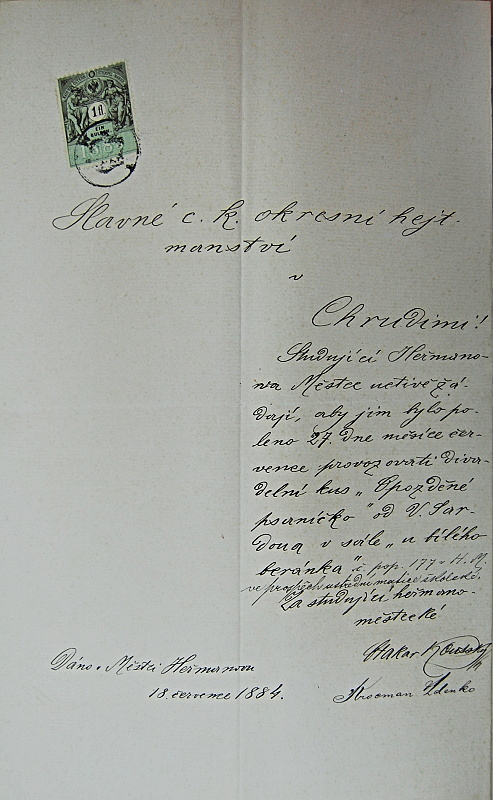 1 fl
EIN
GULDEN
Slavné c. k. okresní hejt-
manství
v
Chrudimi!
Studující Heřmano-
va Městce uctivě žá-
dají, aby jim bylo po-
leno 27. dne měsíce čer-
vence provozovati diva-
delní kus „Opozděné
psaníčko" od V. Sar-
doua v sále „u bílého
beránka" č. pop. 177 v H. M.
ve prospěch ústřední matice školské.
Za studující heřmano-
městecké
Otakar
Kroman Zdenko
Dáno v Městci Heřmanovu
18. července 1884.